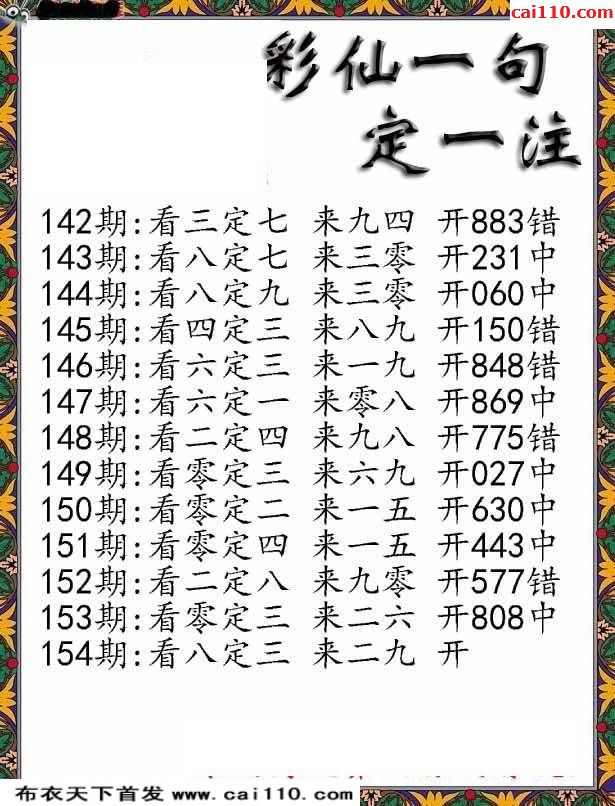 cai110.com
彩仙一句
定一注
142期:看三定七 来九四 开883错
143期:看八定七 来三零 开231中
144期:看八定九 来三零 开060中
145期:看四定三 来八九 开150错
146期:看六定三 来一九 开848错
147期:看六定一 来零八 开869中
148期:看二定四 来九八 开775错
149期:看零定三 来六九 开027中
150期:看零定二 来一五 开630中
151期:看零定四 来一五 开443中
152期:看二定八 来九零 开577错
153期:看零定三 来二六 开808中
154期:看八定三 来二九 开
布衣天下首发 www.cai110.com